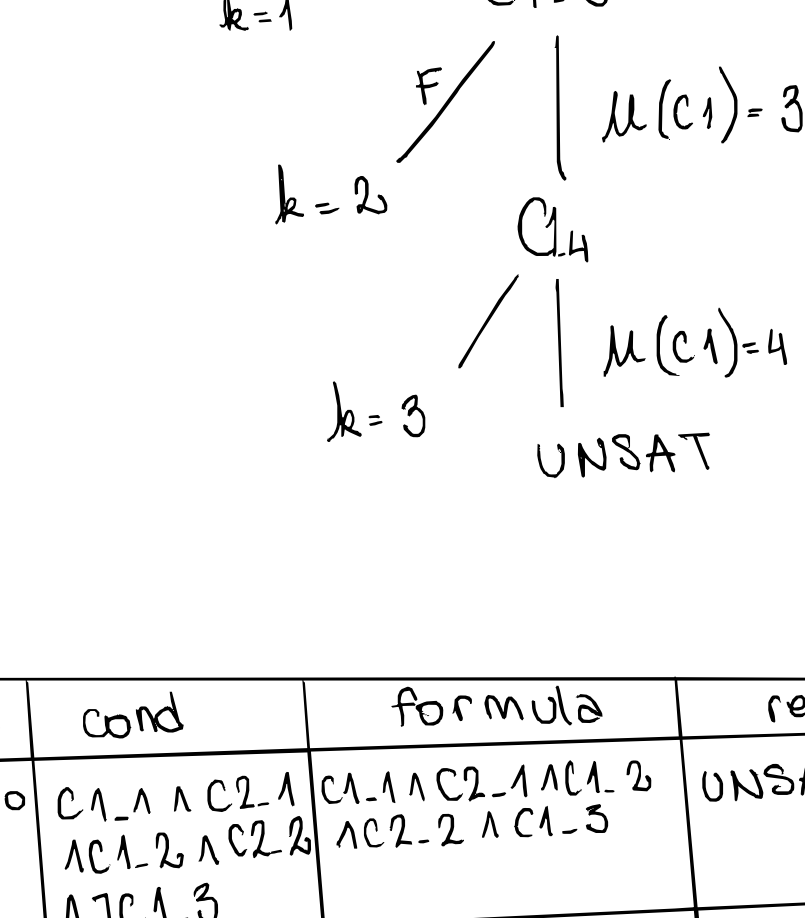 k=1
F
μ(C1)=3
k=2
C1_4
μ(C1)=4
k=3
UNSAT
cond formula
0 C1_1 ∧ C2_1 C1_1 ∧ C2_1 ∧ C1_2
∧ C1_2 ∧ C2_2 ∧ C2_2 ∧ C1_3
∧ ¬C1_3